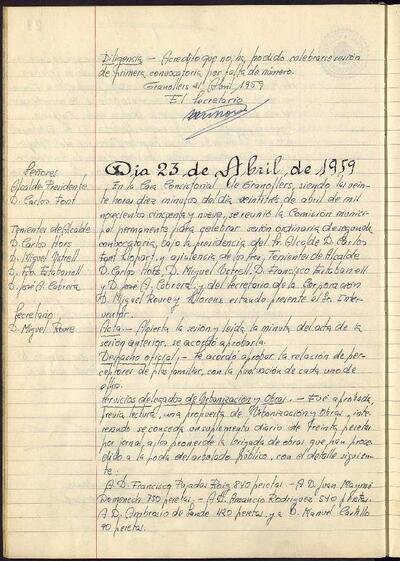 Diligencia — Acredito que no ha podido celebrarse sesión
de primera convocatoria por falta de número.
Granollers 21 Abril 1959
El Secretario
Dia 23 de Abril de 1959
Señores
Alcalde Presidente
D. Carlos Font
Tenientes de Alcalde
D. Carlos Hors
D. Miguel Vetrell
D. Fco. Estabanell
D. José A. Cabrera
Secretario
D. Miguel Roure
En la Casa Consistorial de Granollers, siendo las vein-
te horas diez minutos del día veintitrés de abril de mil
novecientos cincuenta y nueve, se reunió la Comisión munici-
pal permanente para celebrar sesión ordinaria de segunda
convocatoria, bajo la presidencia del Sr. Alcalde D. Carlos
Font Llopart, y asistencia de los Sres. Tenientes de Alcalde
D. Carlos Hors, D. Miguel Vetrell, D. Francisco Estabanell
y D. José A. Cabrera, y del Secretario de la Corporación
D. Miguel Roure y Llorens estando presente el Sr. Inter-
ventor.
Acta. — Abierta la sesión y leída la minuta del acta de la
sesión anterior, se acordó aprobarla.
Despacho oficial. — Se acordó aprobar la relación de per-
ceptores de plus familiar, con la puntuación de cada uno de
ellos.
Servicios delegados de Urbanización y Obras. — Fué aprobada,
previa lectura, una propuesta de Urbanización y Obras, inte-
resando se conceda un suplemento diario de treinta pesetas
por jornal, a los peones de la brigada de obras que han proce-
dido a la poda del arbolado público, con el detalle siguien-
te:
A D. Francisco Pujadas Roig 840 pesetas — A D. Juan Maynou
Domenech 750 pesetas — A D. Amancio Rodriguez 540 pesetas.
A D. Ambrosio de Pando 420 pesetas, y a D. Manuel Castillo
90 pesetas.